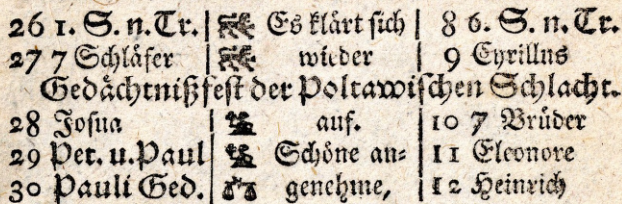 26 1. S. n. Tr. | Es klärt sich | 8 6. S. n. Tr.
27 7 Schläfer | wieder | 9 Cyrillus
Gedächtnißfest der Poltawischen Schlacht.
28 Josua | auf. | 10 7 Brüder
29 Pet. u. Paul | Schöne an= | 11 Eleonore
30 Pauli Ged. | genehme, | 12 Heinrich